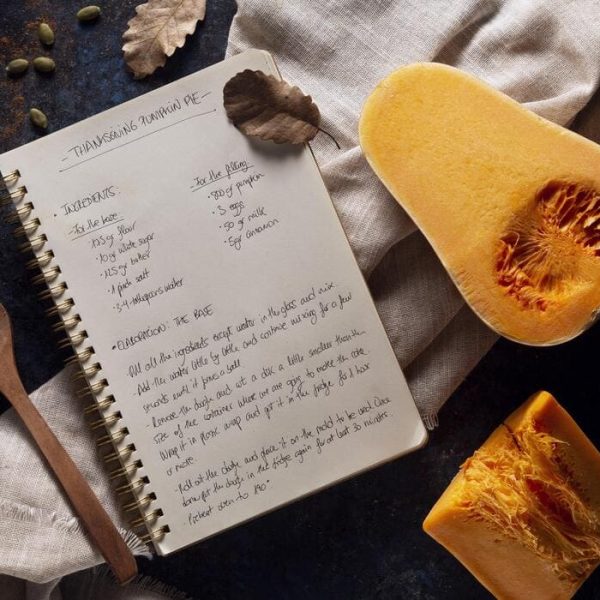 - THANKSGIVING PUMPKIN PIE -
• INGREDIENTS:
- For the base -
125 gr flour
10 gr white sugar
125 gr butter
1 pinch salt
3-4 tablespoons water
- For the filling
• 800 gr pumpkin
• 3 eggs
• 50 gr milk
• 5 gr cinnamon
• ELABORACION: THE BASE
- Put all the ingredients except water in the glass and mix.
- Add the water little by little and continue mixing for a few
seconds until it forms a ball.
- Remove the dough and cut a disc a little smaller than the
size of the container where we are going to make the cake.
Wrap it in plastic wrap and put it in the fridge for 1 hour
or more.
- Roll out the dough and place it on the mold to be used. Once
done, put the dough in the fridge again for at least 30 minutes.
- Preheat oven to 190°